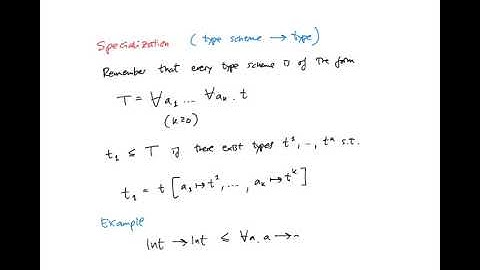 Specialization (type scheme → type)
Remember that every type scheme is of the form
T = ∀a₁ ... ∀aₖ . t
(k≥0)
t₁ ≤ T if there exist types t¹, .., tⁿ s.t.
t₁ = t [a₁ ↦ t¹, ... , aₖ ↦ tᵏ]
Example
Int → Int ≤ ∀a. a →